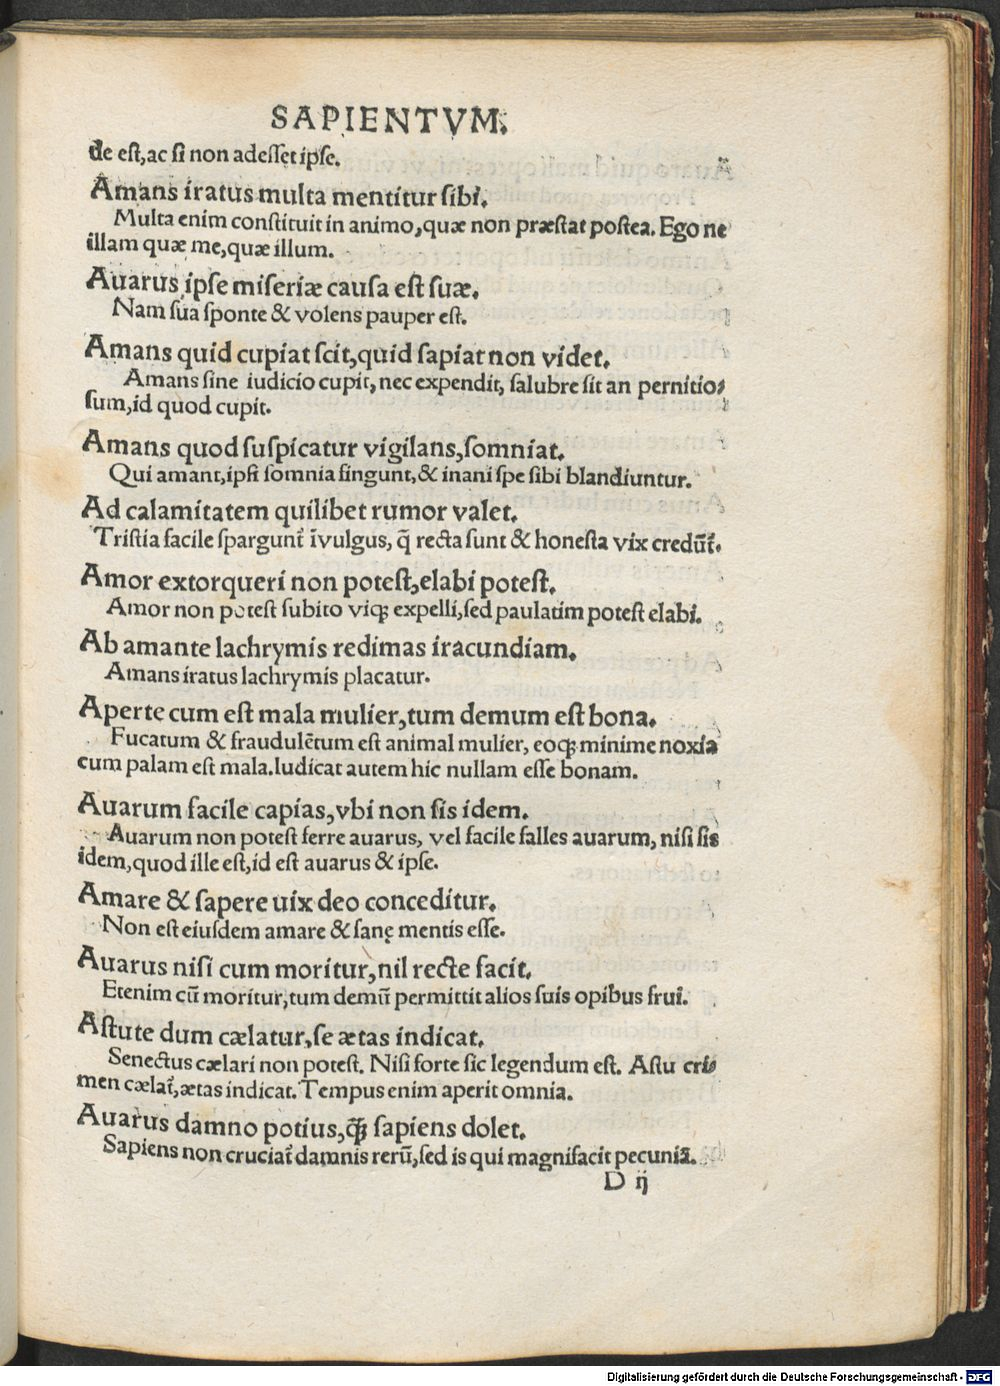 SAPIENTVM.
de est, ac si non adesset ipse.
Amans iratus multa mentitur sibi.
Multa enim constituit in animo, quæ non præstat postea. Ego ne
illam quæ me, quæ illum.
Auarus ipse miseriæ causa est suæ.
Nam sua sponte & volens pauper est.
Amans quid cupiat scit, quid sapiat non videt.
Amans sine iudicio cupit, nec expendit, salubre sit an pernitio⸗
sum, id quod cupit.
Amans quod suspicatur vigilans, somniat.
Qui amant, ipsi somnia fingunt, & inani spe sibi blandiuntur.
Ad calamitatem quilibet rumor valet.
Tristia facile sparguntᷣ ĩvulgus, q̄ recta sunt & honesta vix credūtᷣ.
Amor extorqueri non potest, elabi potest.
Amor non potest subito viqꝫ expelli, sed paulatim potest elabi.
Ab amante lachrymis redimas iracundiam.
Amans iratus lachrymis placatur.
Aperte cum est mala mulier, tum demum est bona.
Fucatum & fraudulētum est animal mulier, eoqꝫ minime noxia
cum palam est mala. Iudicat autem hic nullam esse bonam.
Auarum facile capias, vbi non sis idem.
Auarum non potest ferre auarus, vel facile falles auarum, nisi sis
idem, quod ille est, id est auarus & ipse.
Amare & sapere uix deo conceditur.
Non est eiusdem amare & sanę mentis esse.
Auarus nisi cum moritur, nil recte facit.
Etenim cū moritur, tum demū permittit alios suis opibus frui.
Astute dum cælatur, se ætas indicat.
Senectus cælari non potest. Nisi forte sic legendum est. Astu cri⸗
men cælatᷣ, ætas indicat. Tempus enim aperit omnia.
Auarus damno potius, q̄ꝫ sapiens dolet.
Sapiens non cruciatᷣ damnis rerū, sed is qui magnifacit pecuniā.
D ij
Digitalisierung gefördert durch die Deutsche Forschungsgemeinschaft - DFG